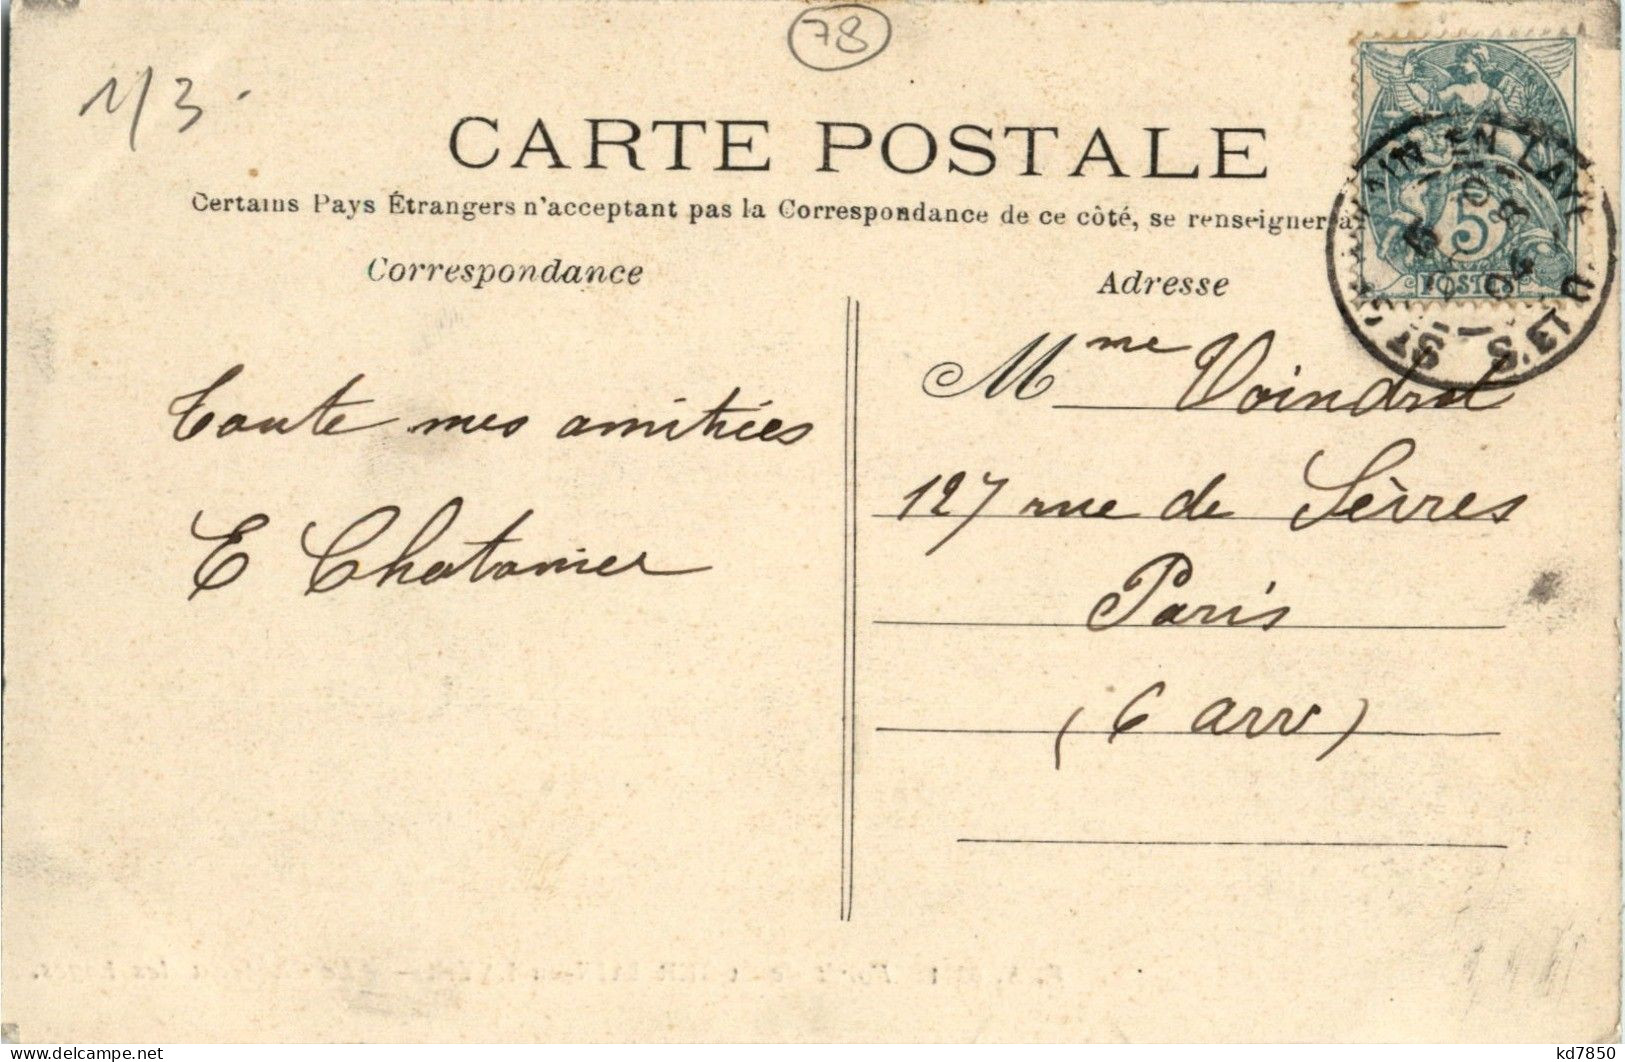 78
1/3.
CARTE POSTALE
Certains Pays Étrangers n'acceptant pas la Correspondance de ce côté, se renseigner à
Correspondance
Adresse
5c
POSTES
EN LAYE
S. ET O.
Mme Voindrot
Toute mes amitiées
127 rue de Sèvres
E Chatanier
Paris
(6 arr)
kd7850